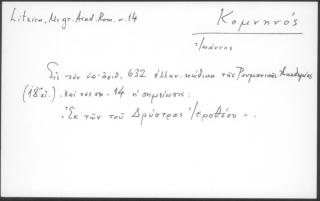 Litzica, Ms gr. Acad. Rom. σ. 14
Κομνηνός
Ἰωάννης
Εἰς τὸν ὑπ' ἀριθ. 632 ἑλλην. κώδικα τῆς Ρουμανικῆς Ἀκαδημίας
(18ου αἰ.) καὶ ἐν σελ. 14 ἡ σημείωσις:
«Ἐκ τῶν τοῦ Δρύστρας Ἱεροθέου».